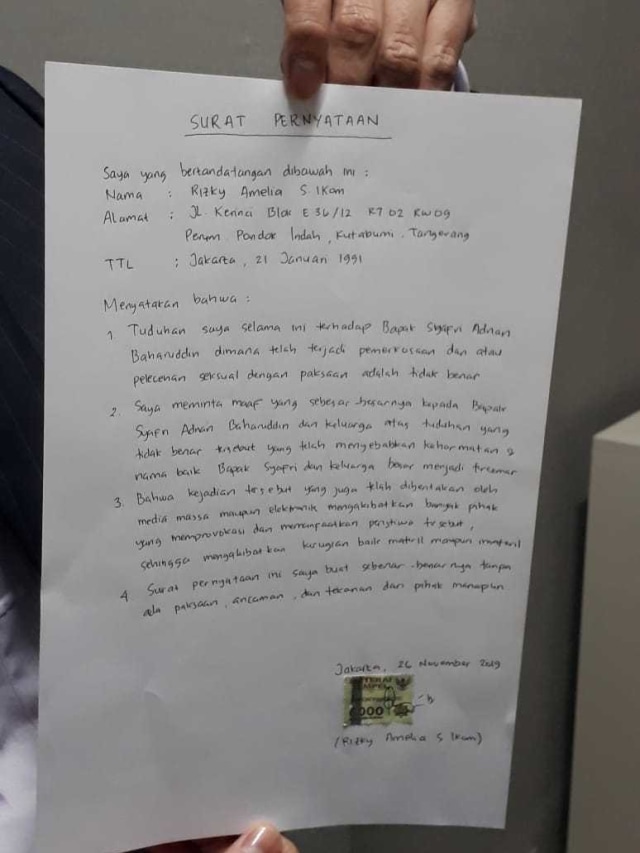 SURAT PERNYATAAN
Saya yang bertandatangan dibawah ini :
Nama : Rizky Amelia S.IKom
Alamat : Jl. Kerinci Blok E 36/12 RT 02 RW 09
Perum. Pondok Indah, Kutabumi. Tangerang
TTL : Jakarta, 21 Januari 1991
Menyatakan bahwa :
1 Tuduhan saya selama ini terhadap Bapak Syafri Adnan
Baharuddin dimana telah terjadi pemerkosaan dan atau
pelecehan seksual dengan paksaan adalah tidak benar
2. Saya meminta maaf yang sebesar-besarnya kepada Bapak
Syafri Adnan Baharuddin dan keluarga atas tuduhan yang
tidak benar tersebut yang telah menyebabkan kehormatan &
nama baik Bapak Syafri dan keluarga besar menjadi tercemar
3. Bahwa kejadian tersebut yang juga telah diberitakan oleh
media massa maupun elektronik mengakibatkan banyak pihak
yang memprovokasi dan memanfaatkan peristiwa tersebut,
sehingga mengakibatkan kerugian baik materil maupun imateril
4. Surat pernyataan ini saya buat sebenar-benarnya tanpa
ada paksaan, ancaman, dan tekanan dari pihak manapun
Jakarta, 26 November 2019
METERAI
TEMPEL
6000
(Rizky Amelia S.IKom)